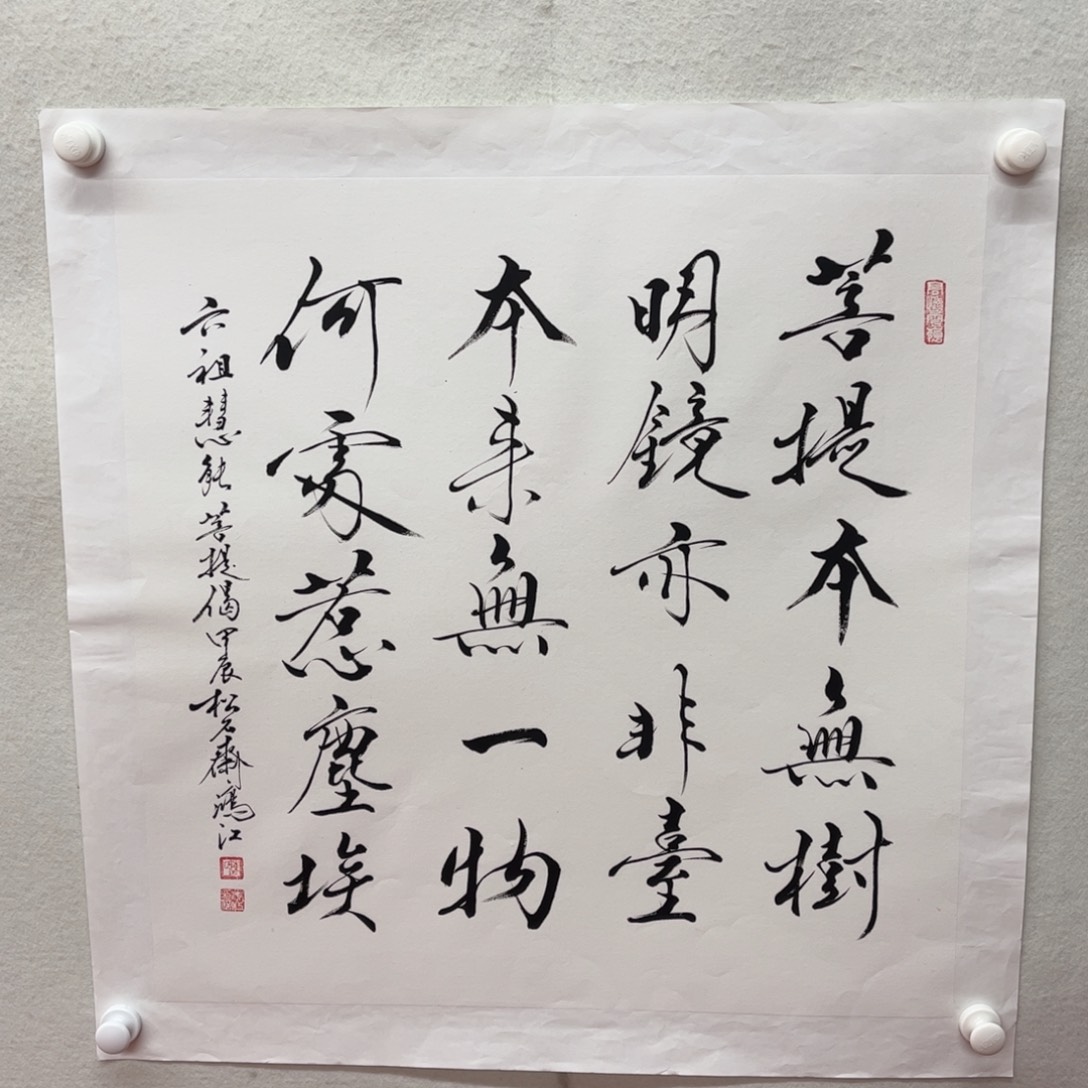 菩提本無樹
明鏡亦非臺
本来無一物
何處惹塵埃
六祖慧能菩提偈甲辰松石齋鴻江